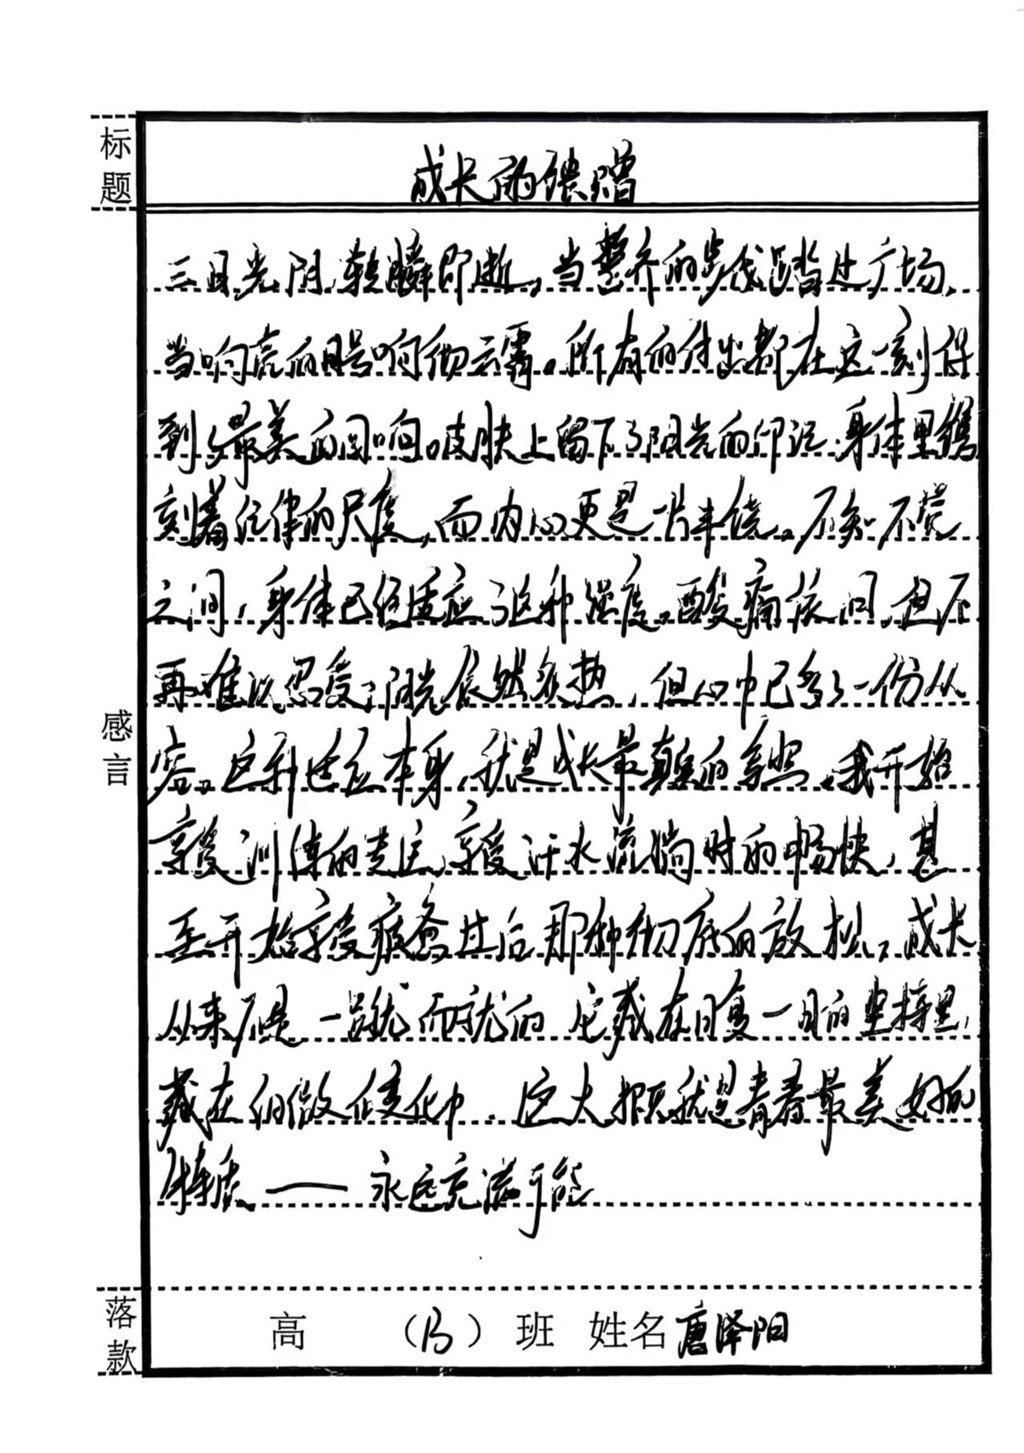 标题
成长的馈赠
三日光阴,转瞬即逝。当整齐的步伐踏过广场,
当响亮的口号响彻云霄。所有的付出都在这一刻得
到了最美的回响。皮肤上留下了阳光的印记,身体里镌
刻着纪律的尺度,而内心更是一片丰饶。不知不觉
之间,身体已经适应了这种强度。酸痛依旧,也不
再难以忍受;阳光依然炙热,但心中已多了一份从
容。这种适应本身,就是成长最真实的写照。我开始
享受训练的过程,享受汗水流淌时的畅快,甚
至开始享受疲惫过后那种彻底的放松。成长
从来不是一蹴而就的,它藏在日复一日的坚持里,
藏在细微变化中.这大概就是青春最美好的
特质——永远充满可能
感言
落款
高 (13) 班 姓名 唐泽阳